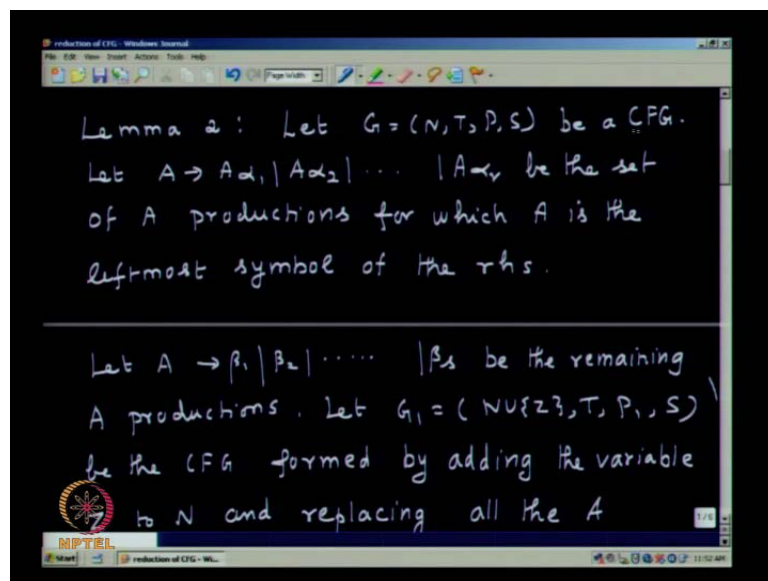 reduction of CFG - Windows Journal
File Edit View Insert Actions Tools Help
Page Width
Lemma 2 : Let G = (N, T, P, S) be a CFG.
Let A → Aα₁ | Aα₂ | ... | Aαᵣ be the set
of A productions for which A is the
leftmost symbol of the rhs.
Let A → β₁ | β₂ | ...... | βs be the remaining
A productions. Let G₁ = ( NU{Z}, T, P₁, S)
be the CFG formed by adding the variable
Z to N and replacing all the A
1/6
NPTEL
Start
reduction of CFG - Wi...
11:52 AM